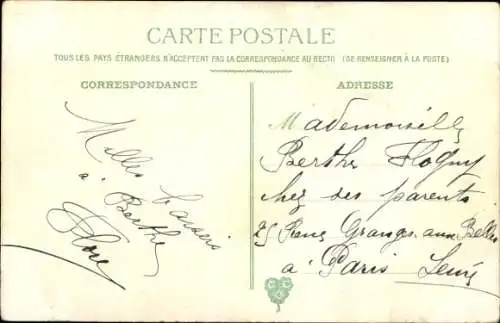 CARTE POSTALE
TOUS LES PAYS ÉTRANGERS N'ACCEPTENT PAS LA CORRESPONDANCE AU RECTO (SE RENSEIGNER À LA POSTE)
CORRESPONDANCE
Milles baisers
à Berthe
Flore
ADRESSE
Mademoiselle
Berthe Floguy
chez ses parents
25 Rue Granges aux Belles
à Paris